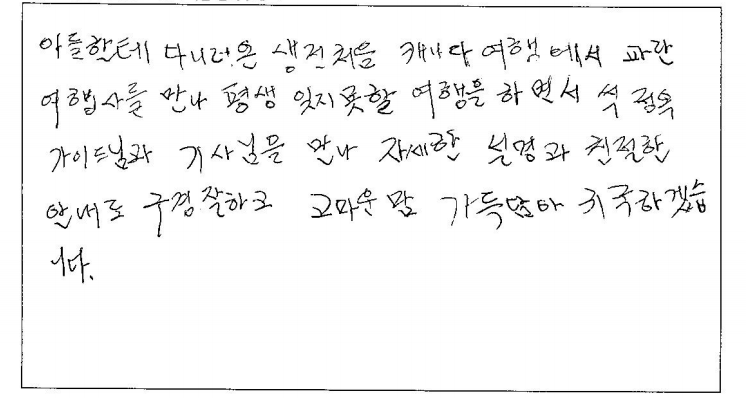 아들한테 다니러온 생전처음 캐나다 여행에서 파란
여행사를 만나 평생 잊지못할 여행을 하면서 석 점옥
가이드님과 기사님을 만나 자세한 설명과 친절한
안내로 구경잘하고 고마운맘 가득담아 귀국하겠습
니다.